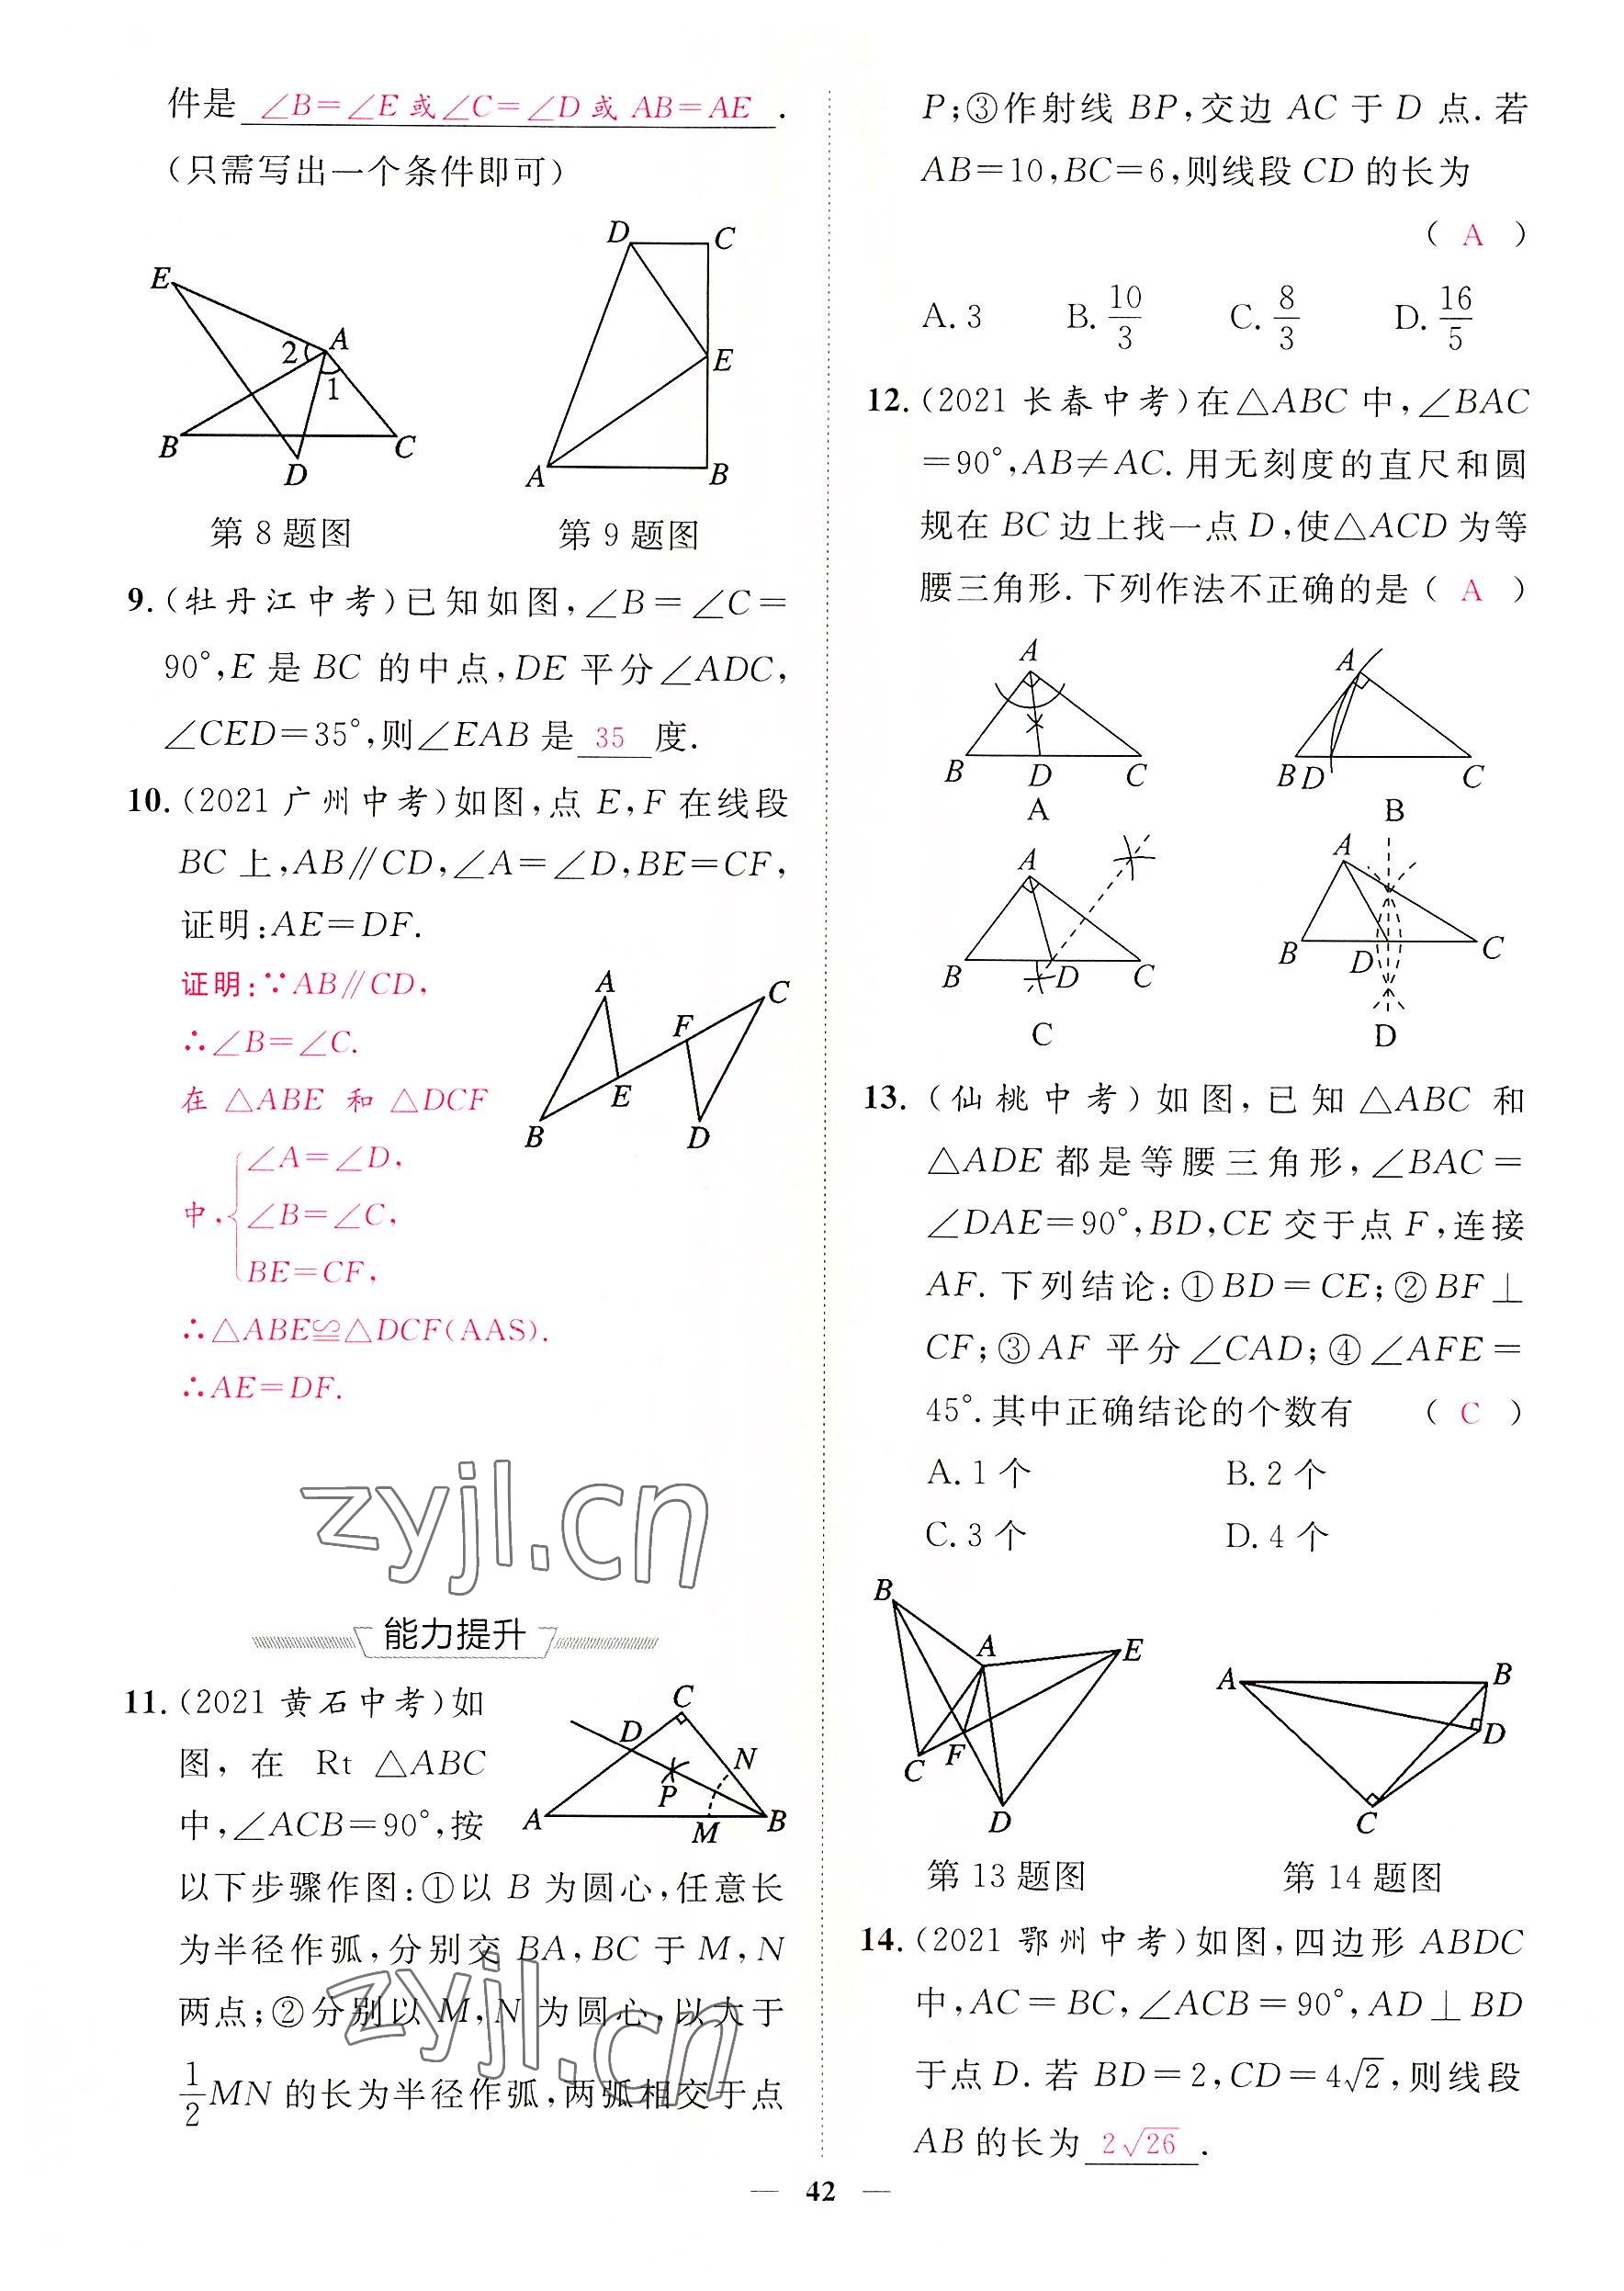 件是 ∠B=∠E或∠C=∠D或 AB=AE .
(只需写出一个条件即可)
E
A
2
1
B
C
D
第 8 题图
D
C
E
A
B
第 9 题图
9.(牡丹江中考)已知如图,∠B=∠C=
90°,E 是 BC 的中点,DE 平分∠ADC,
∠CED=35°,则∠EAB 是 35 度.
10.(2021 广州中考)如图,点 E,F 在线段
BC 上,AB∥CD,∠A=∠D,BE=CF,
证明:AE=DF.
证明:∵AB∥CD,
∴∠B=∠C.
在 △ABE 和 △DCF
中,{∠A=∠D,
∠B=∠C,
BE=CF,
∴△ABE≌△DCF(AAS).
∴AE=DF.
A
C
F
E
B
D
zyjl.cn
能力提升
11.(2021 黄石中考)如
图,在 Rt △ABC
中,∠ACB=90°,按
以下步骤作图:①以 B 为圆心,任意长
为半径作弧,分别交 BA,BC 于 M,N
两点;②分别以 M,N 为圆心,以大于
1/2 MN 的长为半径作弧,两弧相交于点
C
D
N
P
A
M
B
zyjl.cn
P;③作射线 BP,交边 AC 于 D 点.若
AB=10,BC=6,则线段 CD 的长为
( A )
A. 3 B. 10/3 C. 8/3 D. 16/5
12.(2021 长春中考)在△ABC 中,∠BAC
=90°,AB≠AC.用无刻度的直尺和圆
规在 BC 边上找一点 D,使△ACD 为等
腰三角形.下列作法不正确的是( A )
A
B D C
A
A
B D C
B
A
B D C
C
A
B D C
D
13.(仙桃中考)如图,已知△ABC 和
△ADE 都是等腰三角形,∠BAC=
∠DAE=90°,BD,CE 交于点 F,连接
AF.下列结论:①BD=CE;②BF⊥
CF;③AF 平分∠CAD;④∠AFE=
45°.其中正确结论的个数有 ( C )
A. 1 个 B. 2 个
C. 3 个 D. 4 个
B
A
E
C
F
D
第 13 题图
A
B
D
C
第 14 题图
14.(2021 鄂州中考)如图,四边形 ABDC
中,AC=BC,∠ACB=90°,AD⊥BD
于点 D.若 BD=2,CD=4√2,则线段
AB 的长为 2√26 .
— 42 —